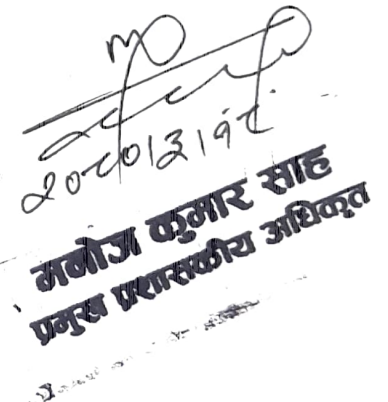 २०८०।३।१८
मनोज कुमार साह
प्रमुख प्रशासकीय अधिकृत